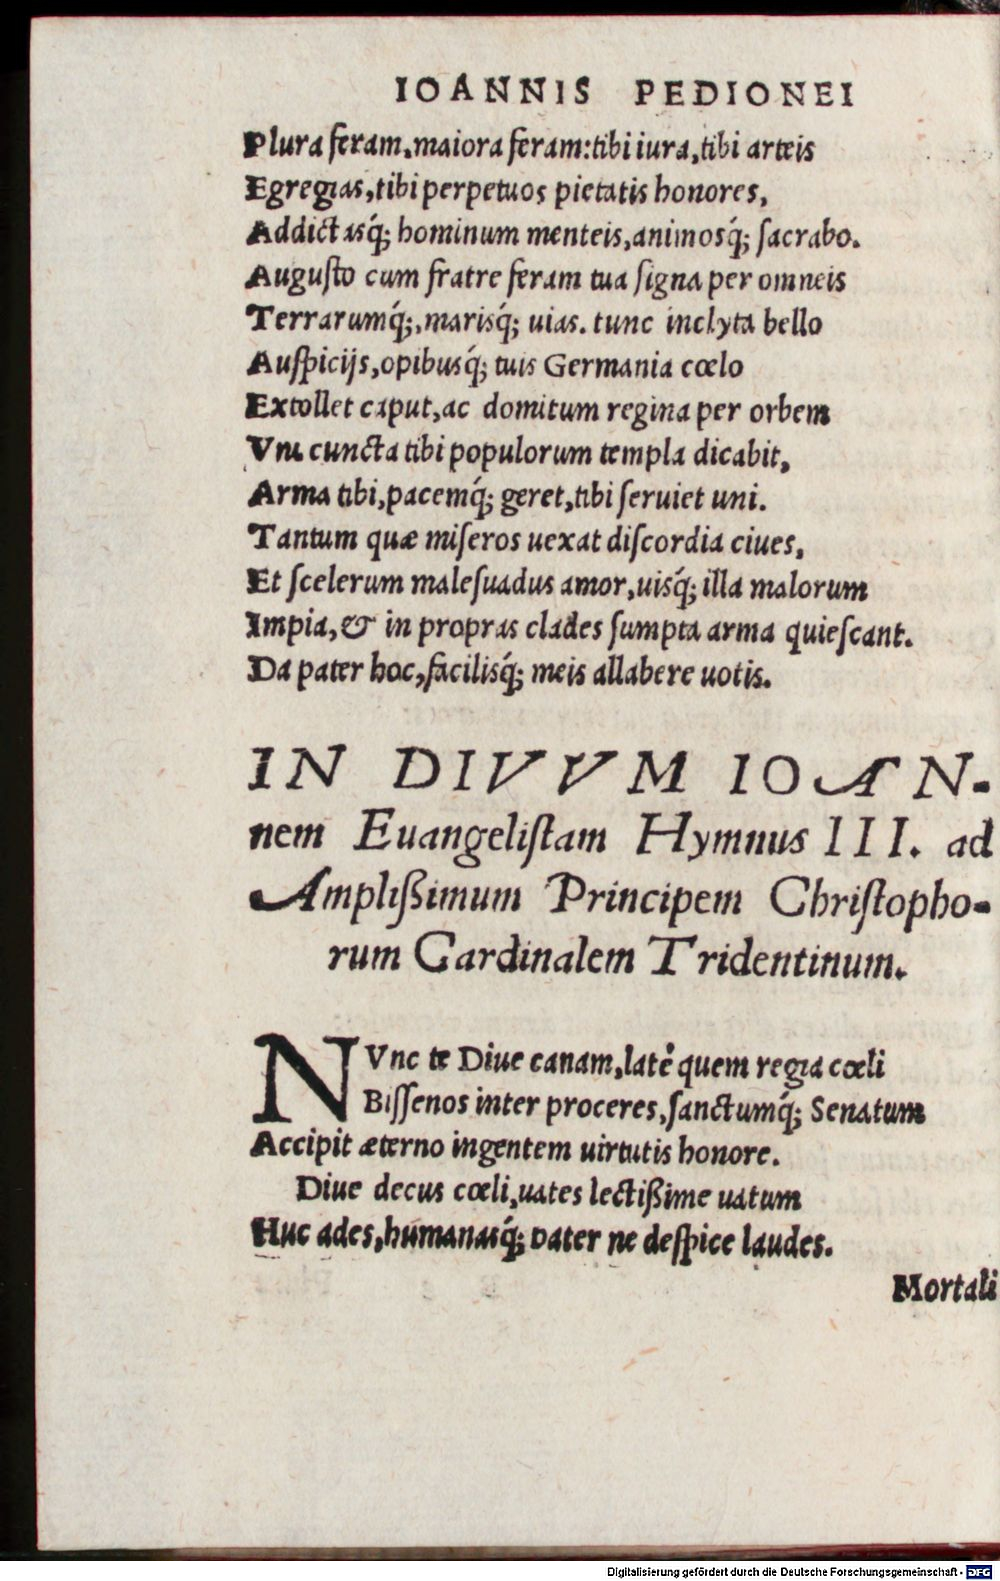 IOANNIS PEDIONEI
Plura feram, maiora feram: tibi iura, tibi arteis
Egregias, tibi perpetuos pietatis honores,
Addictasq́; hominum menteis, animosq́; ſacrabo.
Auguſto cum fratre feram tua ſigna per omneis
Terrarumq́;, marisq́; uias. tunc inclyta bello
Auſpicijs, opibusq́; tuis Germania cœlo
Extollet caput, ac domitum regina per orbem
Vni cuncta tibi populorum templa dicabit,
Arma tibi, pacemq́; geret, tibi ſeruiet uni.
Tantum quæ miſeros uexat diſcordia ciues,
Et ſcelerum maleſuadus amor, uisq́; illa malorum
Impia, & in propras clades ſumpta arma quieſcant.
Da pater hoc, facilisq́; meis allabere uotis.
IN DIVVM IOAN-
nem Euangeliſtam Hymnus III. ad
Ampliſsimum Principem Chriſtopho-
rum Cardinalem Tridentinum.
NVnc te Diue canam, latè quem regia cœli
Biſſenos inter proceres, ſanctumq́; Senatum
Accipit æterno ingentem uirtutis honore.
Diue decus cœli, uates lectiſsime uatum
Huc ades, humanasq́; pater ne deſpice laudes.
Mortali
Digitalisierung gefördert durch die Deutsche Forschungsgemeinschaft - DFG